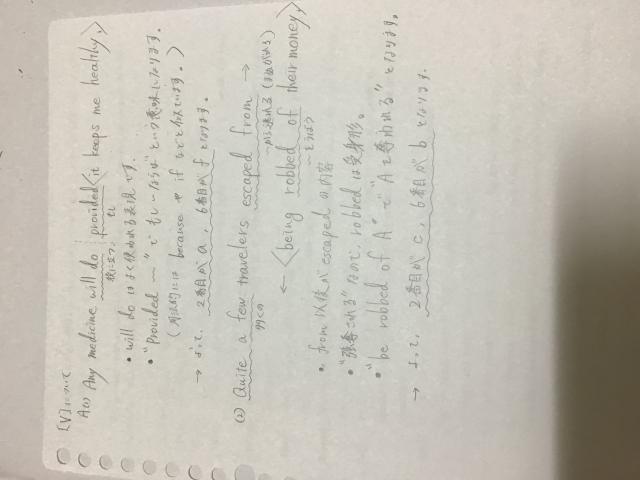 [V]について
A(1) Any medicine will do provided <it keeps me healthy,>
役に立つ。 もし
• will do はよく使われる表現です。
• "Provided ~" で "もし~ならば" という意味になります。
(用法的には because や if などと似ています。)
→ よって、 2番目が a , 6番目が f となります。
(2) Quite a few travelers escaped from →
多くの ~から逃れる (まぬがれる)
← <being robbed of their money,>
ごうばう
• from 以後が escaped の内容
• "強奪される" なので、robbed は受身形。
• "be robbed of A" で "A を奪われる" となります。
→ よって、 2番目が c , 6番目が b となります。